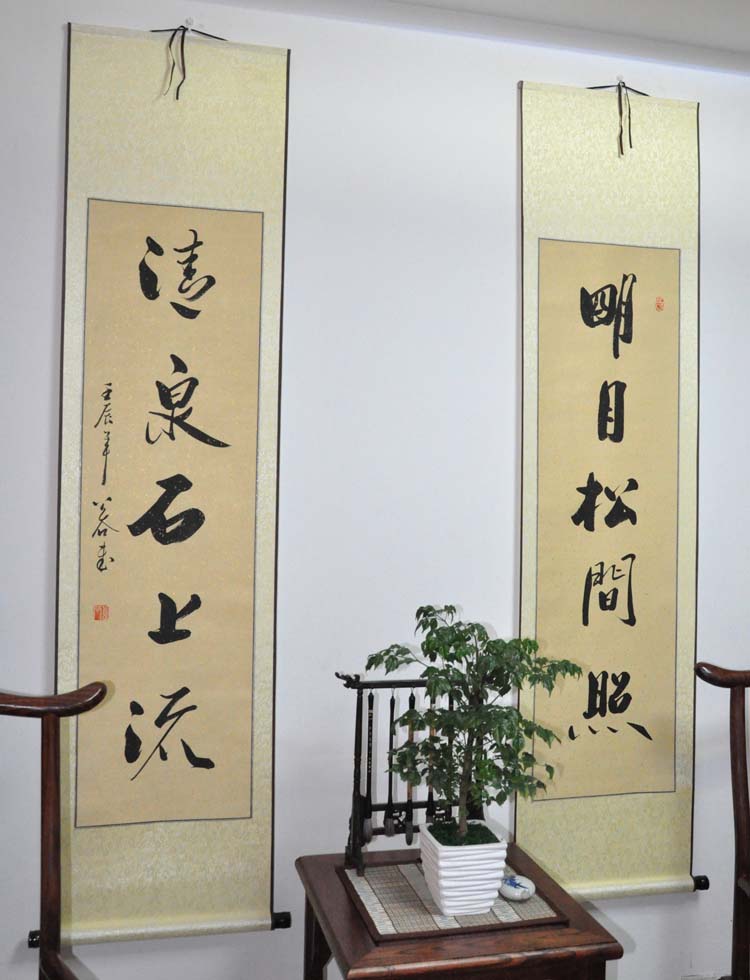 明月松間照
清泉石上流
壬辰年